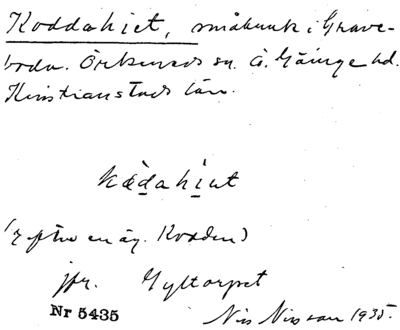 Koddahiet, småbruk i Grave-
boda. Örkeneds sn. Ö. Göinge hd.
Kristianstads län.
kòdahìut
(efter en äg. Kodden)
jfr. Gyltorpet
Nr 5435
Nils Nilsson 1935.